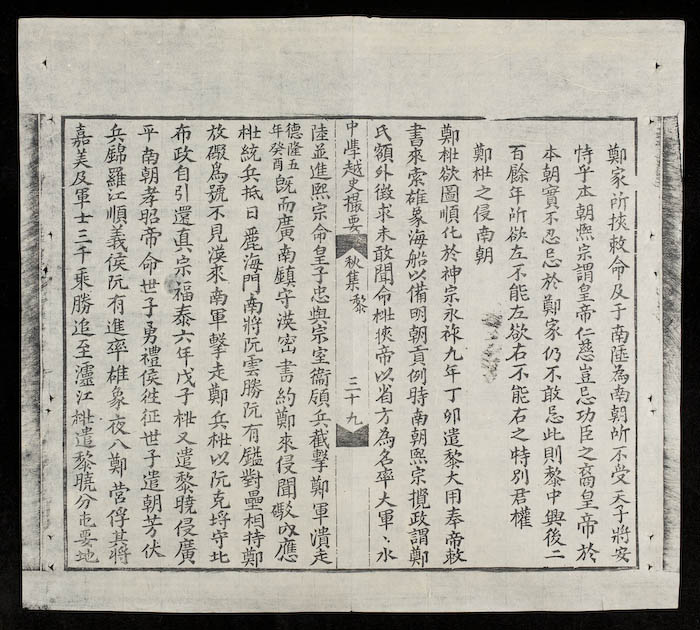 鄭家所挾敕命及于南陲為南朝所不受天子將安
恃乎本朝熙宗謂皇帝仁慈豈忌功臣之裔皇帝於
本朝實不忍忌於鄭家仍不敢忌此則黎中興後二
百餘年所欲左不能左欲右不能右之特別君權
鄭梉之侵南朝
鄭梉欲圖順化於神宗永祚九年丁卯遣黎大用奉帝敕
書來索雄象海船以備明朝貢例時南朝熙宗攬政謂鄭
氏額外徵求未敢聞命梉挾帝以省方為名率大軍〻水
中學越史撮要 秋集黎 三十九
陸並進熙宗命皇子忠與宗室衞領兵截擊鄭軍潰走
德隆五年癸酉既而廣南鎮守渶密書約鄭來侵聞礮以應
梉統兵抵日麗海門南將阮雲勝阮有鎰對壘相持鄭
放礮為號不見渶來南軍擊走鄭兵梉以阮克埒守北
布政自引還真宗福泰六年戊子梉又遣黎曉侵廣
平南朝孝昭帝命世子勇禮侯徃征世子遣朝芳伏
兵錦羅江順義侯阮有進率雄象夜入鄭營俘其將
嘉美及軍士三千乘勝追至瀘江梉遣黎曉分屯要地